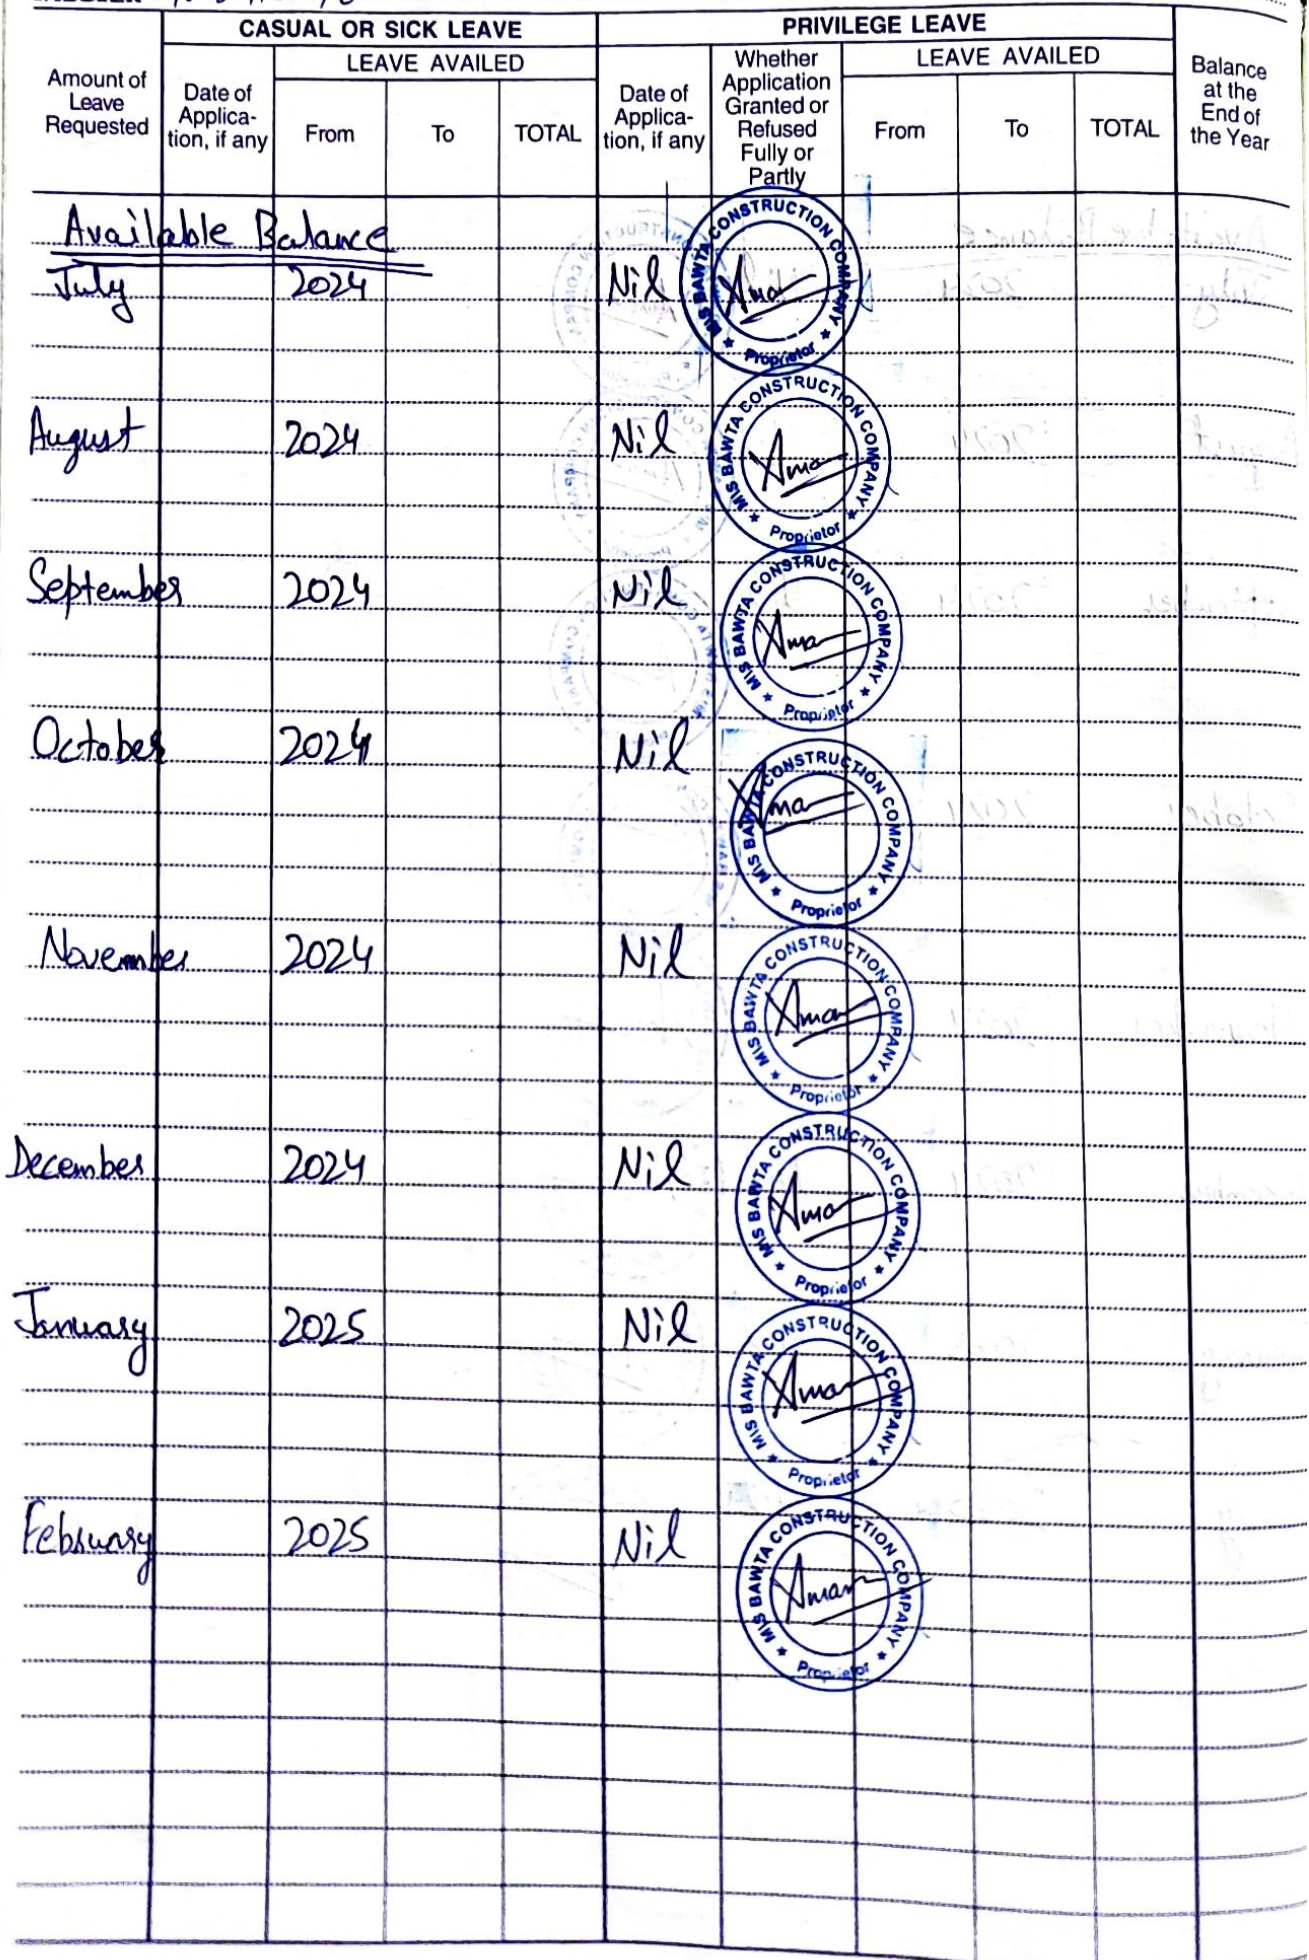 CASUAL OR SICK LEAVE
PRIVILEGE LEAVE
Amount of
Leave
Requested
Date of
Applica-
tion, if any
LEAVE AVAILED
From
To
TOTAL
Date of
Applica-
tion, if any
Whether
Application
Granted or
Refused
Fully or
Partly
LEAVE AVAILED
From
To
TOTAL
Balance
at the
End of
the Year
Available Balance
July 2024 Nil
M/S BAWTA CONSTRUCTION COMPANY
Aman
Proprietor
August 2024 Nil
M/S BAWTA CONSTRUCTION COMPANY
Aman
Proprietor
September 2024 Nil
M/S BAWTA CONSTRUCTION COMPANY
Aman
Proprietor
October 2024 Nil
M/S BAWTA CONSTRUCTION COMPANY
Aman
Proprietor
November 2024 Nil
M/S BAWTA CONSTRUCTION COMPANY
Aman
Proprietor
December 2024 Nil
M/S BAWTA CONSTRUCTION COMPANY
Aman
Proprietor
January 2025 Nil
M/S BAWTA CONSTRUCTION COMPANY
Aman
Proprietor
February 2025 Nil
M/S BAWTA CONSTRUCTION COMPANY
Aman
Proprietor